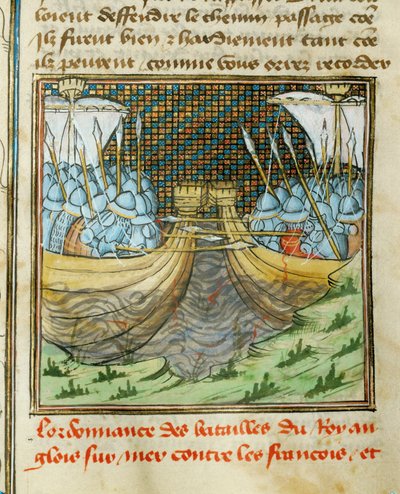 loient deffendre le chemin passage coe
ilz firent bien z hardiement tant coe
ilz peurent comme vous orrez recorder
Lordonnance des batailles du Roy an
glois sur mer contre les francois et